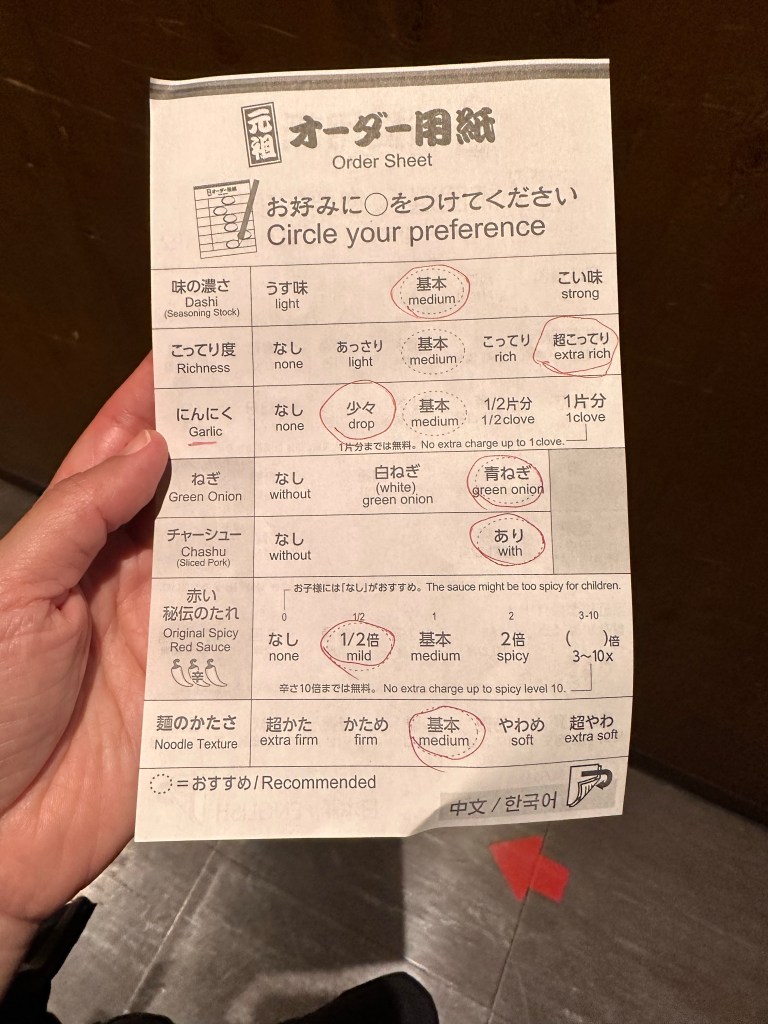 元祖 オーダー用紙
Order Sheet
お好みに○をつけてください
Circle your preference
味の濃さ うす味 基本 こい味
Dashi light medium strong
(Seasoning Stock)
こってり度 なし あっさり 基本 こってり 超こってり
Richness none light medium rich extra rich
にんにく なし 少々 基本 1/2片分 1片分
Garlic none drop medium 1/2clove 1clove
1片分までは無料。No extra charge up to 1clove.
ねぎ なし 白ねぎ 青ねぎ
Green Onion without (white) green onion
green onion
チャーシュー なし あり
Chashu without with
(Sliced Pork)
お子様には「なし」がおすすめ。The sauce might be too spicy for children.
赤い 0 1/2 1 2 3-10
秘伝のたれ なし 1/2倍 基本 2倍 ( )倍
Original Spicy none mild medium spicy 3〜10x
Red Sauce
辛
辛さ10倍までは無料。No extra charge up to spicy level 10.
麺のかたさ 超かた かため 基本 やわめ 超やわ
Noodle Texture extra firm firm medium soft extra soft
=おすすめ/Recommended
中文 / 한국어